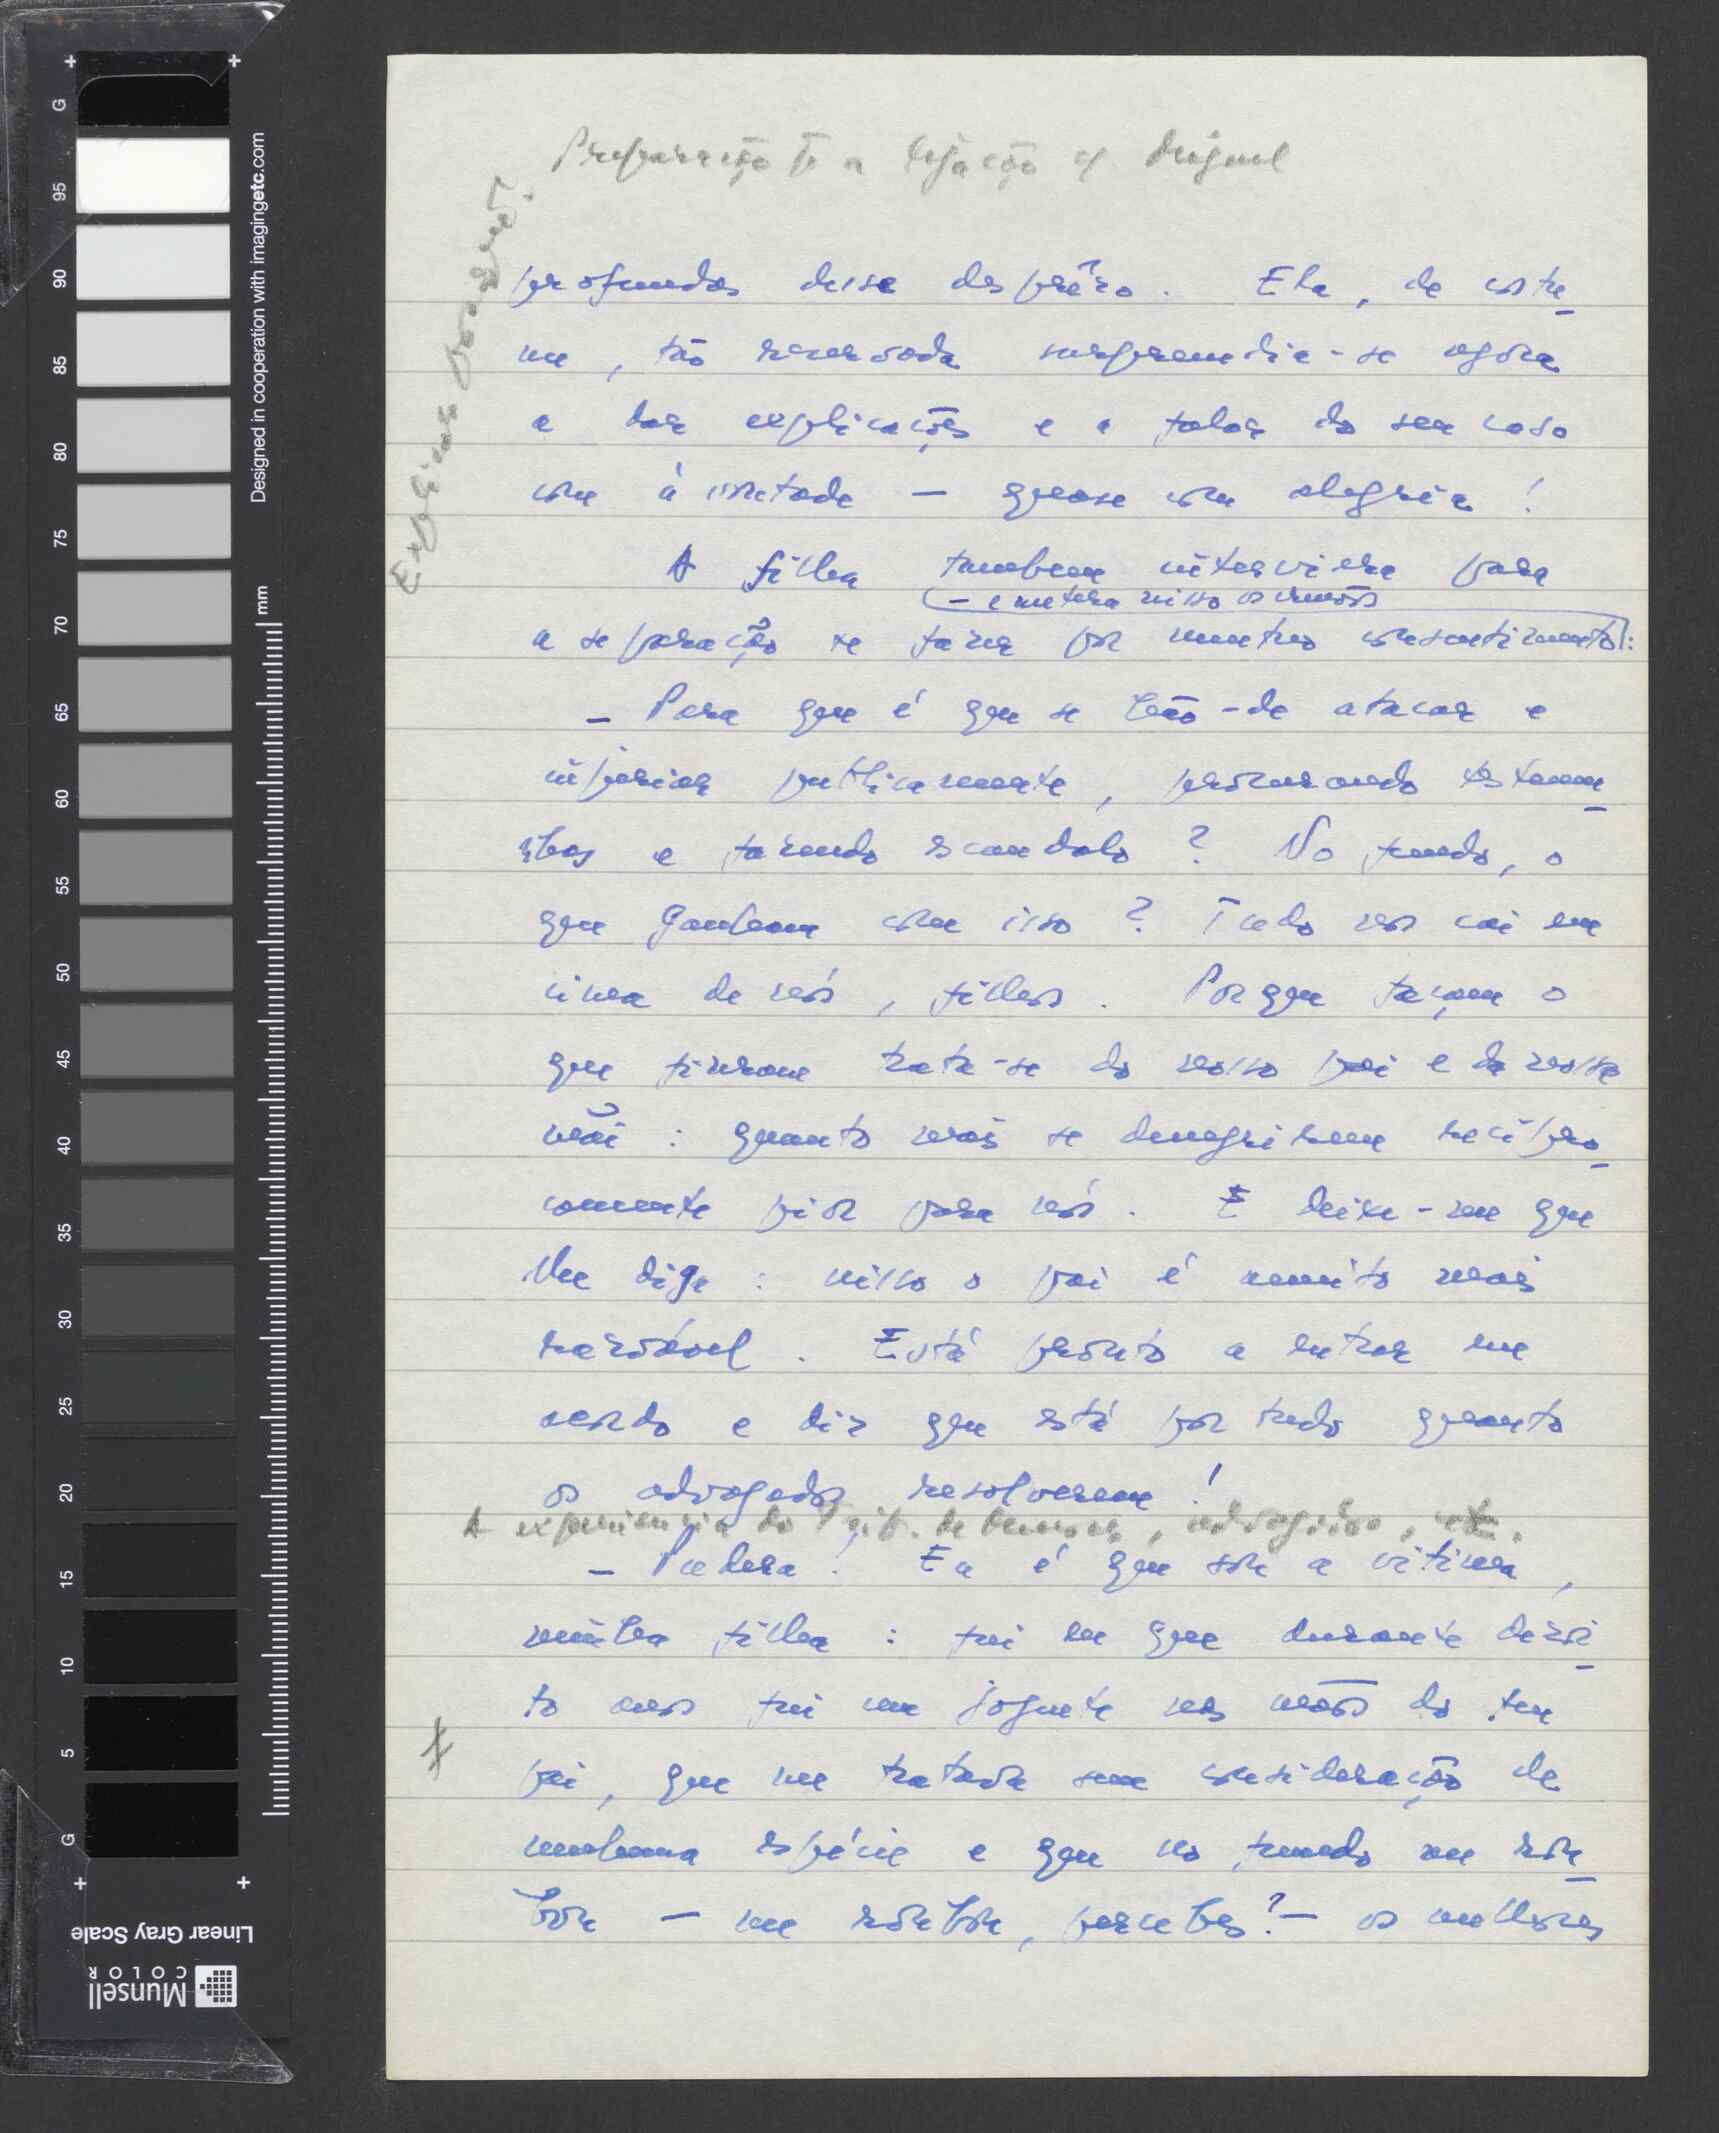 Preparação p a ligação c/ Miguel
profundas desse desprêzo. Ela, de costu
me, tão reservada surpreendia-se agora
a dar explicações e a falar do seu caso
com à vontade — quase com alegria!
A filha tambem interviera para
— e metera nisso os irmãos
a separação se fazer por mutuo consentimento:
— Para que é que se hão-de atacar e
injuriar publicamente, procurando testemu
nhas e fazendo escandalo? No fundo, o
que ganham com isso? Tudo vos cai em
cima de nós, filhos. Porque façam o
que fizerem trata-se do nosso pai e da nossa
mãi: quanto mais se denegrirem recípro
camente pior para nós. E deixe-me que
lhe diga: nisso o pai é muito mais
razoável. Está pronto a entrar em
acordo e diz que está por tudo quanto
os advogados resolverem!
A experiencia do Trib. de Menores, advogados, etc.
— Pudera! Eu é que sou a vitima,
minha filha: fui eu que durante dezoi
to anos fui um joguete nas mãos do teu
pai, que me tratava sem consideração de
nenhuma espécie e que no fundo me rou
bou — me roubou, percebes? — os melhores
Explicar
Designed in cooperation with imagingetc.com
mm
G
95
90
85
80
75
70
65
60
55
50
45
40
35
30
25
20
15
10
5
G
Linear Gray Scale
Munsell
COLOR